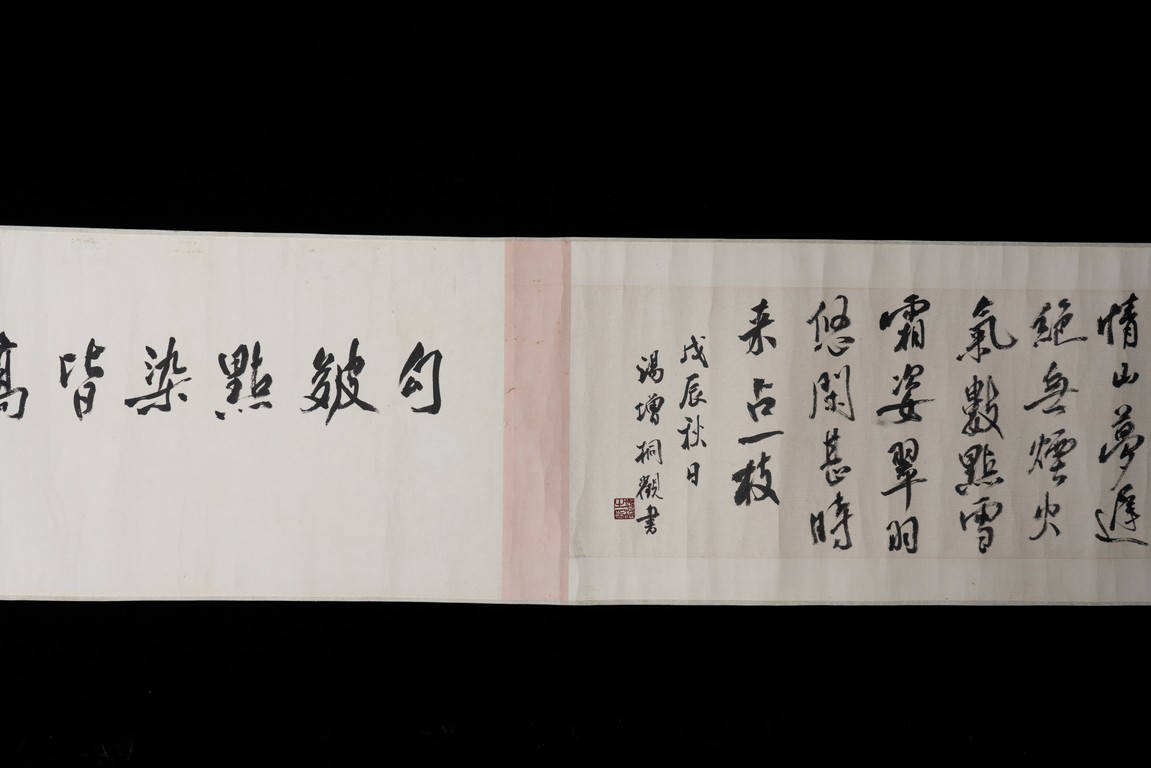 情山夢遲
絕無煙火
氣數點雪
霜姿翠羽
悠閑甚時
来占一枝
戊辰秋日
湯增桐觀書
勾皴點染皆高